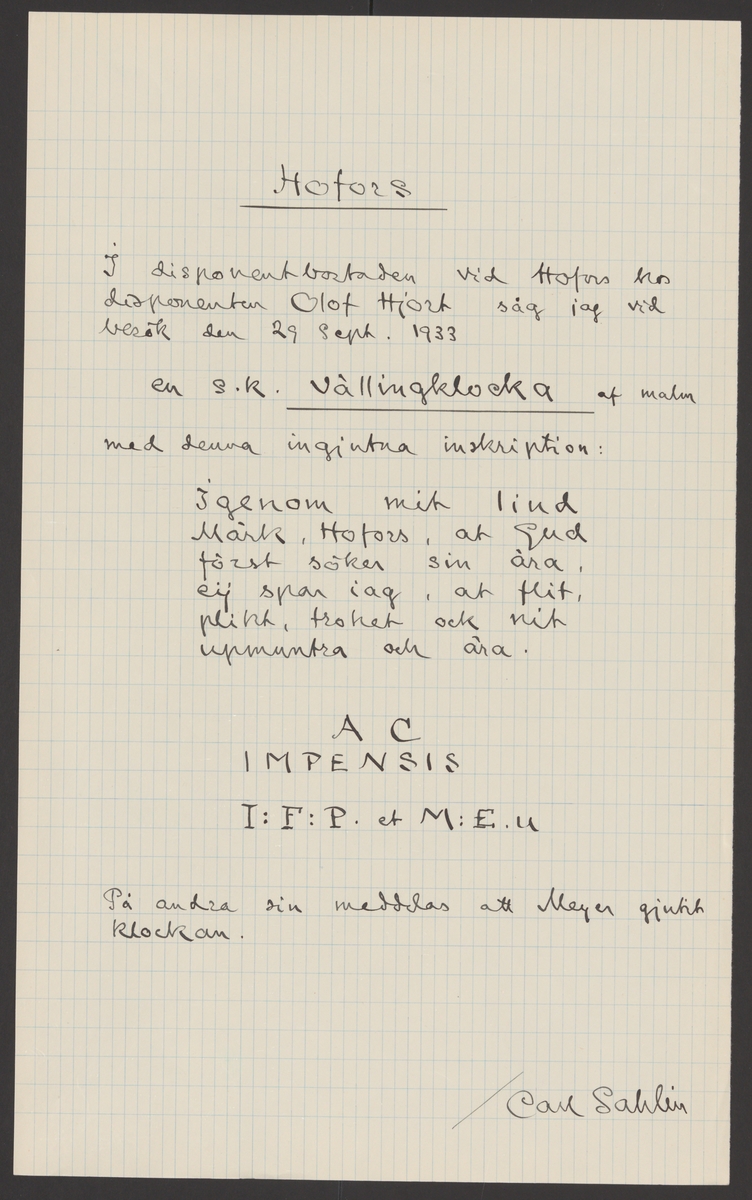 Hofors
I disponentbostaden vid Hofors hos
disponenten Olof Hjort såg jag vid
besök den 29 Sept. 1933
en s.k. Vällingklocka af malm
med denna ingjutna inskription:
Igenom mit liud
Märk, Hofors, at Gud
först söker sin ära,
eij spar iag, at flit,
plikt, trohet ock nit
upmuntra och ära.
A C
IMPENSIS
I: F: P. et M: E. U
På andra sin meddelas att Meyer gjutit
klockan.
/Carl Sahlin